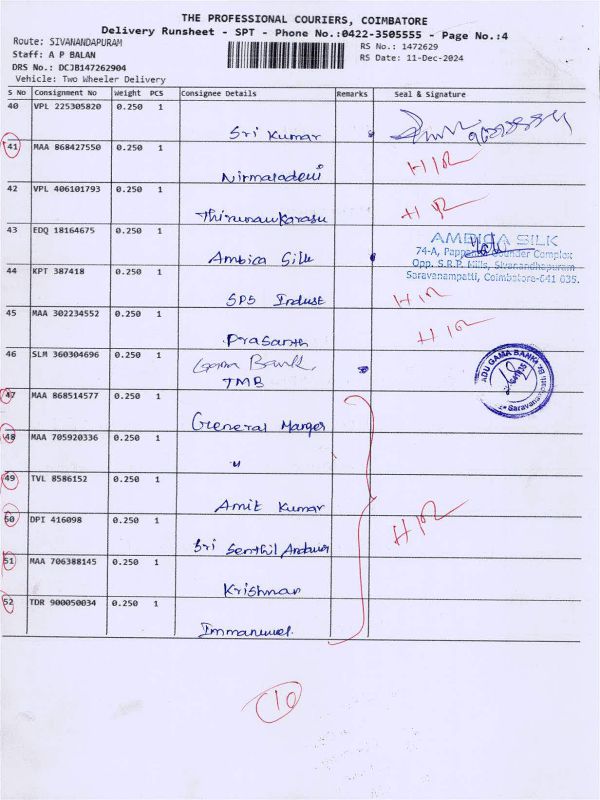 THE PROFESSIONAL COURIERS, COIMBATORE
Delivery Runsheet - SPT - Phone No.:0422-3505555 - Page No.:4
Route: SIVANANDAPURAM
RS No.: 1472629
Staff: A P BALAN
RS Date: 11-Dec-2024
DRS No.: DCJB147262904
Vehicle: Two Wheeler Delivery
S No Consignment No Weight PCS Consignee Details Remarks Seal & Signature
40 VPL 225305820 0.250 1
Sri Kumar
41 MAA 868427550 0.250 1
Nirmaladevi
42 VPL 406101793 0.250 1
Thirunavukarasu
43 EDQ 18164675 0.250 1
Ambica Silk
AMBICA SILK
74-A, Complex
Opp. S.R.P. Mills, Sivanandhapuram
Saravanampatti, Coimbatore-641 035.
44 KPT 387418 0.250 1
SPS Indust
45 MAA 302234552 0.250 1
Prasanth
46 SLM 360304696 0.250 1
Gama Bank
TMB
47 MAA 868514577 0.250 1
General Manger
48 MAA 705920336 0.250 1
"
49 TVL 8586152 0.250 1
Amit Kumar
50 DPI 416098 0.250 1
Sri Senthil Andavar
51 MAA 706388145 0.250 1
Krishnan
52 TDR 900050034 0.250 1
Immanuvel
10